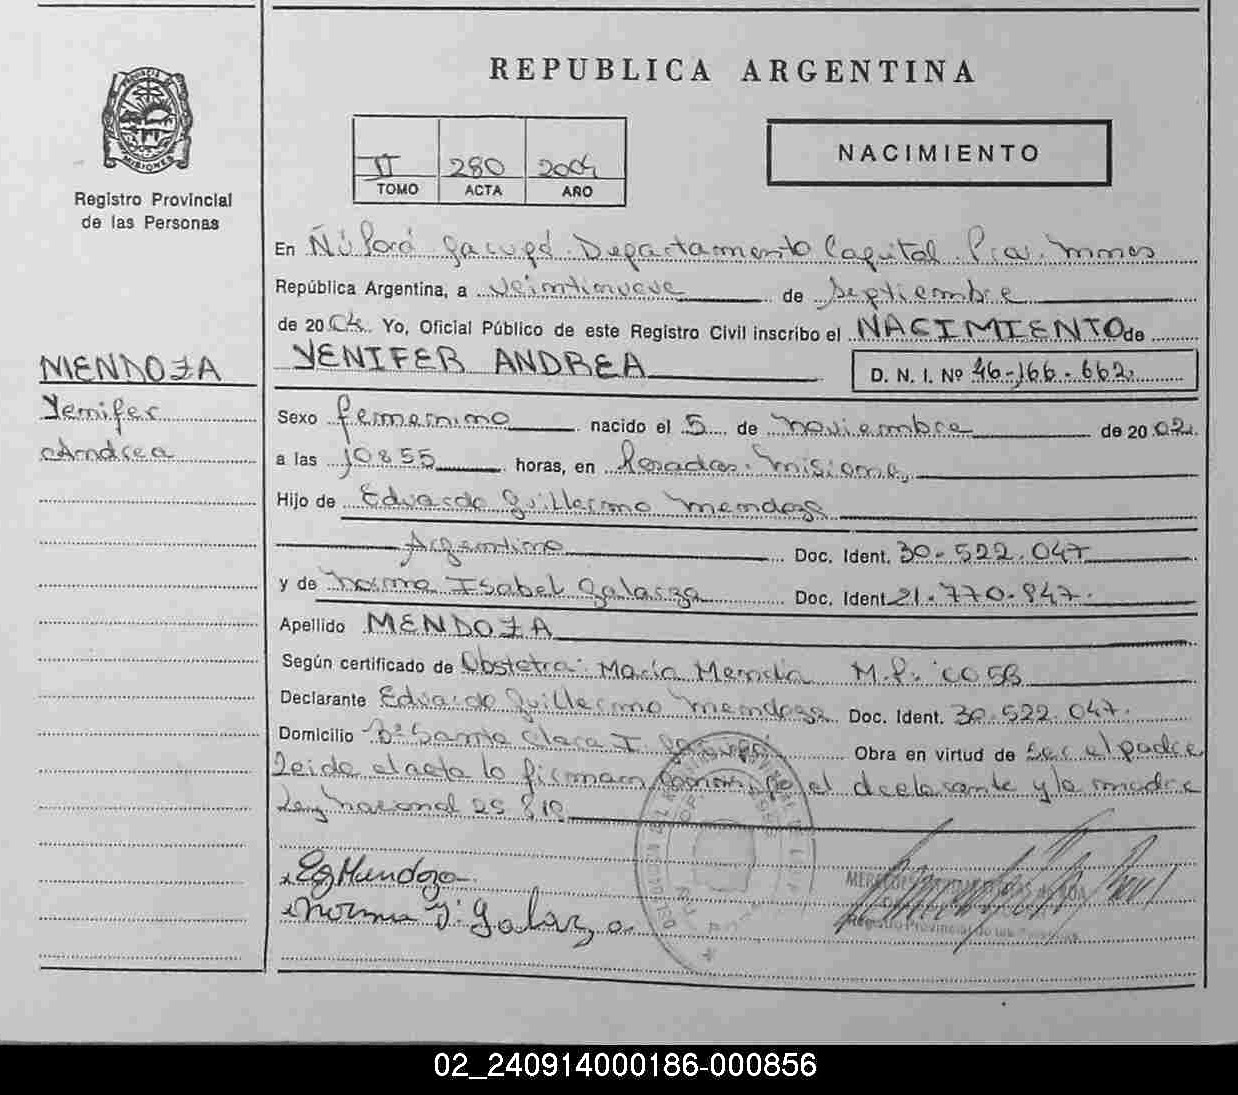 REPUBLICA ARGENTINA
PROVINCIA DE MISIONES
Registro Provincial
de las Personas
II 280 2004
TOMO ACTA AÑO
NACIMIENTO
En Ñú Porá Garupá. Departamento Capital. Pcia. Mnes
República Argentina, a Veintinueve de Septiembre
de 2004. Yo, Oficial Público de este Registro Civil inscribo el NACIMIENTO de
YENIFER ANDREA D. N. I. Nº 46-166-662
MENDOZA
Yenifer
Andrea
Sexo femenino nacido el 5 de noviembre de 2002
a las 10 y 55 horas, en Posadas. Misiones
Hijo de Eduardo Guillermo Mendoza
Argentino Doc. Ident. 30-522.047
y de Norma Isabel Galarza Doc. Ident 21-770-947-
Apellido MENDOZA
Según certificado de Obstetra: María Merida M.P. CO5B
Declarante Eduardo Guillermo Mendoza Doc. Ident. 30.522.047.
Domicilio Bº Santa Clara I Garupá Obra en virtud de Ser el padre
Leida el acta lo firman conmigo el declarante y la madre
Ley Nacional 25 819
EgMendoza
Norma I. Galarza
Registro Provincial de las Personas
02_240914000186-000856